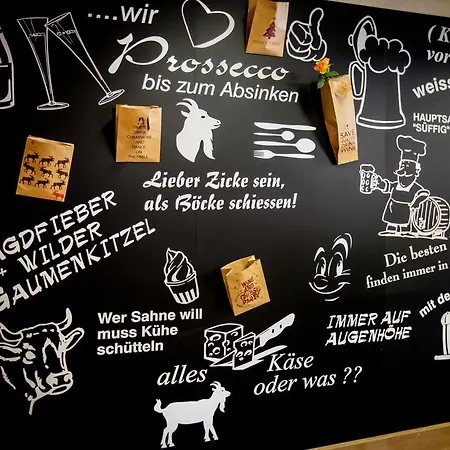 ....wir
Prossecco
bis zum Absinken
(K
vor
weiss
HAUPTSA
"SÜFFIG"
SAVE
WINE
DRINK
CHAMPAGNE
AND
DANCE
ON
THE TABLE
Lieber Zicke sein,
als Böcke schiessen!
AGDFIEBER
+ WILDER
GAUMENKITZEL
Die besten
finden immer in
Wer Sahne will
muss Kühe
schütteln
IMMER AUF
AUGENHÖHE
mit de
alles
Käse
oder was ??